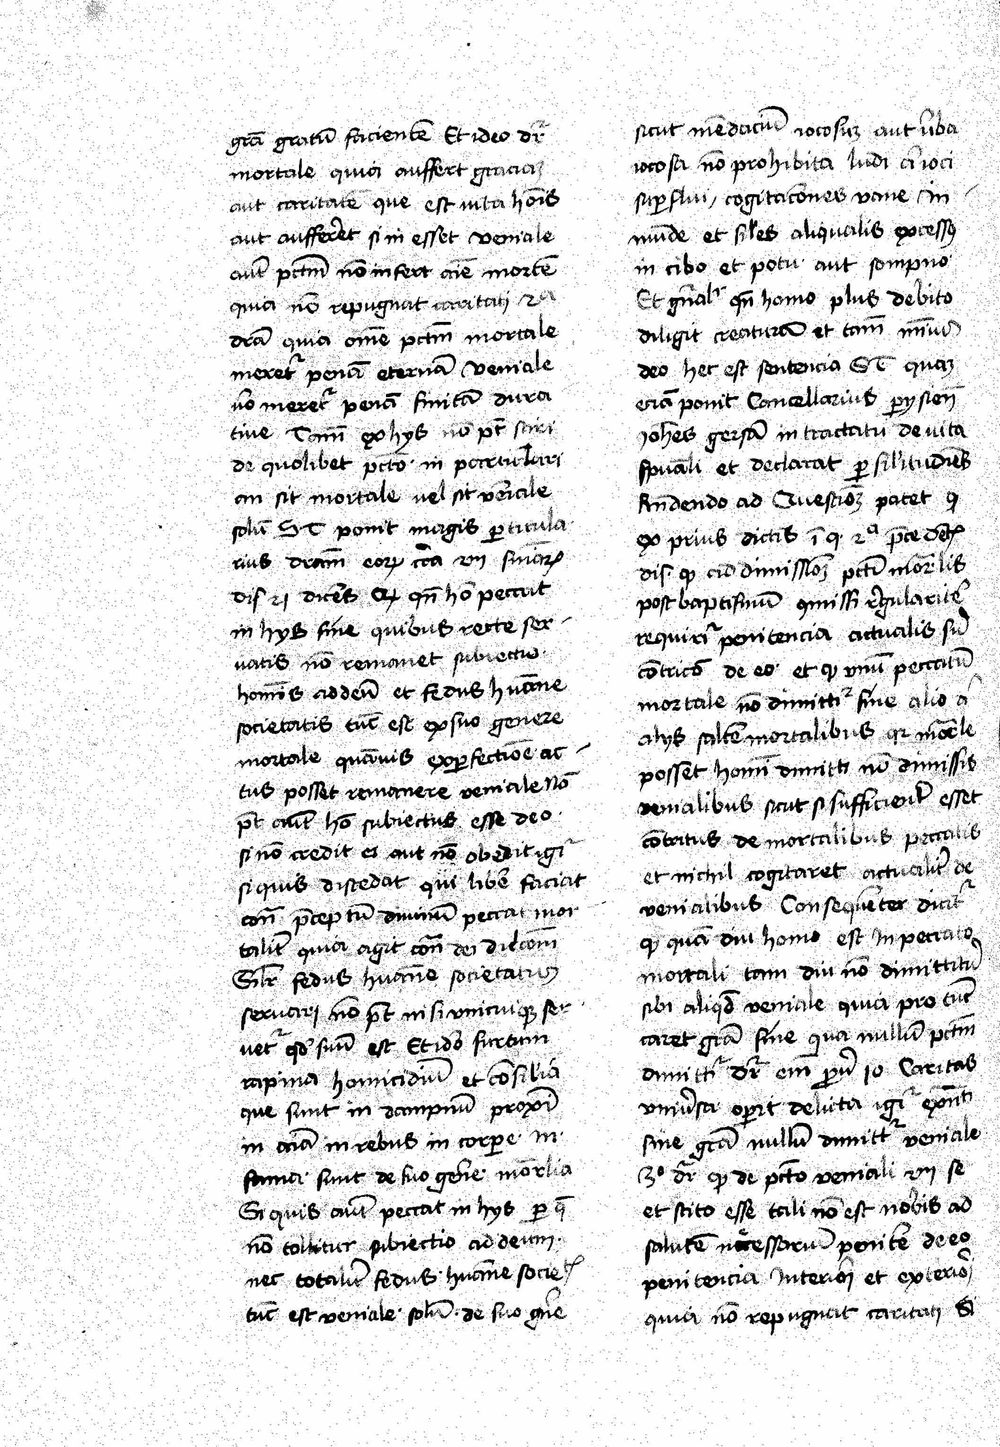 grā gratū facientē Et ideo dr̄
mortale quia auffert graciaꝫ
aut caritatē que est uita hoīs
aut aufferret si in esset veniale
aut pctm̄ nō infert aīe mortē
quia nō repugnat caritati 2ᵃ
drā quia om̄e pctm̄ mortale
meret᷑ penā eternā veniale
ūo meret᷑ penā finitā dura
tiue Tamē ex hys nō pt̄ sciri
de quolibet pctō in particulari
an sit mortale uel sit veniale
solū ST ponit magis particula
rius dram̄ eoꝝ circa vii sn̄iaꝝ
dis 21 dicēs Qꝫ qn̄ hō peccat
in hys sine quibus recte ser-
uatis nō remanet subiectio
hominis ad deū et fedus humāne
societatis tūc est ex suo genere
mortale quāuis ex perfectiōe ac-
tus posset remanere veniale Nō
pt̄ aut̄ hō subiectus esse deo
si nō credit ei aut nō obedit igi᷑
si quis discedat qui libē faciat
contrā preceptū diuinū peccat mor
talit̄ quia agit contrā dei dilc̄om̄
Silr̄ fedus humāne societatis
seruari nō pt̄ nisi vnicuiqꝫ ser-
uet᷑ qd̄ suū est Et idō furtum
rapina homicidiū et cōsilia
que sunt in dampnū proxīi
in aīa in rebus in corpore in
fama sunt de suo gen̄e mōrlia
Si quis aut̄ peccat in hys per q̄
nō tollitur subiectio ad deum
nec totalit̄ fedus humāne societꝭ
tūc est veniale solū de suo gn̄e
sicut mēdaciū iocosuꝫ aut ūba
iocosa nō prohibita ludi ac ioci
superflui / cogitacōnes vane in
mūde et siles aliqualis excessꝰ
in cibo et potu aut sompno
Et gn̄alr̄ qn̄ homo plus debito
diligit creaturā et tam̄ minus
deo hec est sentencia ST quaꝫ
eciā ponit Cancellarius parysien̄
Joh̄es gersā in tractatu de uita
spūali et declarat per silitudies
Rn̄dendo ad Questioēꝫ patet qꝫ
ex prius dictis ī q 2ᵃ prcedētꝭ
dis qꝫ ad dimissioēꝫ pctī mōrlis
post baptismū cōmissi regularitē
requirit᷑ penitencia actualis siue
cōtricō de eo et qꝫ vnū peccatū
mortale nō dimitti᷑ sine alio a
alys saltē mortalibus qr̄ mōrle
posset homī dimitti nō dimissis
venialibus sicut si sufficient̄ esset
cōtritus de mortalibus peccatis
et nichil cogitaret actualit̄ de
venialibus Consequēter dicit᷑
qꝫ quā diu homo est in peccato
mortali tam diu nō dimittitur
sibi aliqd̄ veniale quia pro tūc
caret grā sine qua nullū pctm̄
dimitti᷑ dr̄ em̄ prou̅ 10 Caritas
vniūsa operit delicta igi᷑ exn̄ti
sine grā nullū dimitt᷑ veniale
3º dr̄ qꝫ de pctō veniali vii se
et scito esse tali nō est nobis ad
salutē necessariū penitē de eo
penitencia interiori et exteriori
quia nō repugnat caritati Si